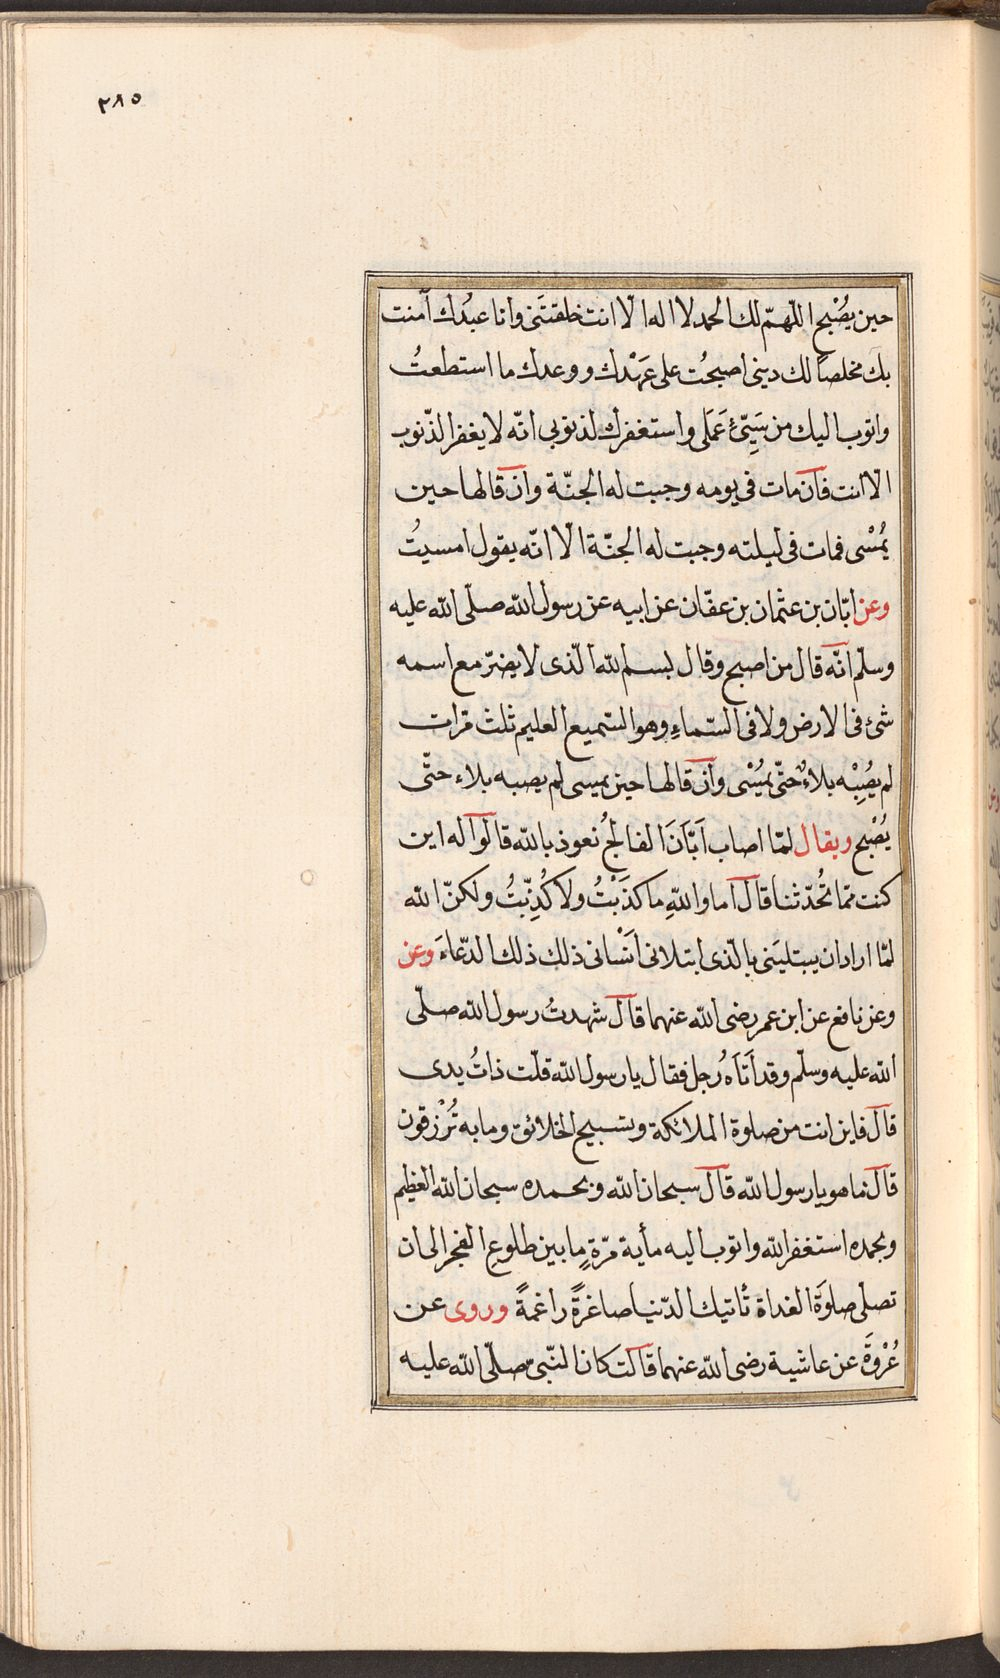 ٣٨٥
حين يُصْبح اللّهمّ لك الحمد لا اله الّا انت خلقتَنى وانا عبدُك آمنت
بك مخلصًا لك دينى اصبحُت على عَهْدك ووعدك ما استطعتُ
واتوب اليك من سَيّئ عَمَلى واستغفرك لذنوبى انّه لا يغفر الذّنوب
الّا انت فان مات فى يومه وجبت له الجنّة وان قالها حين
يُمْسى فمات فى ليلته وجبت له الجنّة الّا انّه يقول امسيتُ
وعن ابّان بن عثمان بن عفّان عن ابيه عن رسول الله صلّى الله عليه
وسلّم انّه قال من اصبح وقال بسم الله الّذى لا يضرّ مع اسمه
شئ فى الارض ولا فى السّماءِ وهو السّميع العليم ثلث مرّات
لم يُصِبْه بلاءٌ حتّى يُمْسى وان قالها حين يمسى لم يصبه بلاء حتّى
يُصْبح ويقال لمّا اصاب اَبّانَ الفالجُ نعوذ بالله قالوا له اين
كنت ممّا تُحدّثنا قال اما واللهِ ما كذَبْتُ ولا كُذِّبتُ ولكنّ الله
لمّا اراد ان يبتليَنى بالّذى ابتلانى اَنْسانى ذلك ذلك الدّعاءَ وعن
وعن نافع عن ابن عمر رضى الله عنهما قال شهدتُ رسول الله صلّى
الله عليه وسلّم وقد اَتَاه رُجل فقال يا رسول الله قلّت ذاتُ يدى
قال فاين انت من صلوة الملائكة وتسبيح الخلائق وما به تُرْزقون
قال ما هو يا رسول الله قال سبحان الله وبحمده سبحان الله العظيم
وبحمده استغفر الله واتوب اليه مأية مرّةٍ ما بين طلوع الفجر الى ان
تصلى صلوةَ الغداة تأتيك الدّنيا صاغرةً راغمةً وروى عن
عُرْوَةَ عن عاشية رضى الله عنهما قالت كان النّبىّ صلّى الله عليه